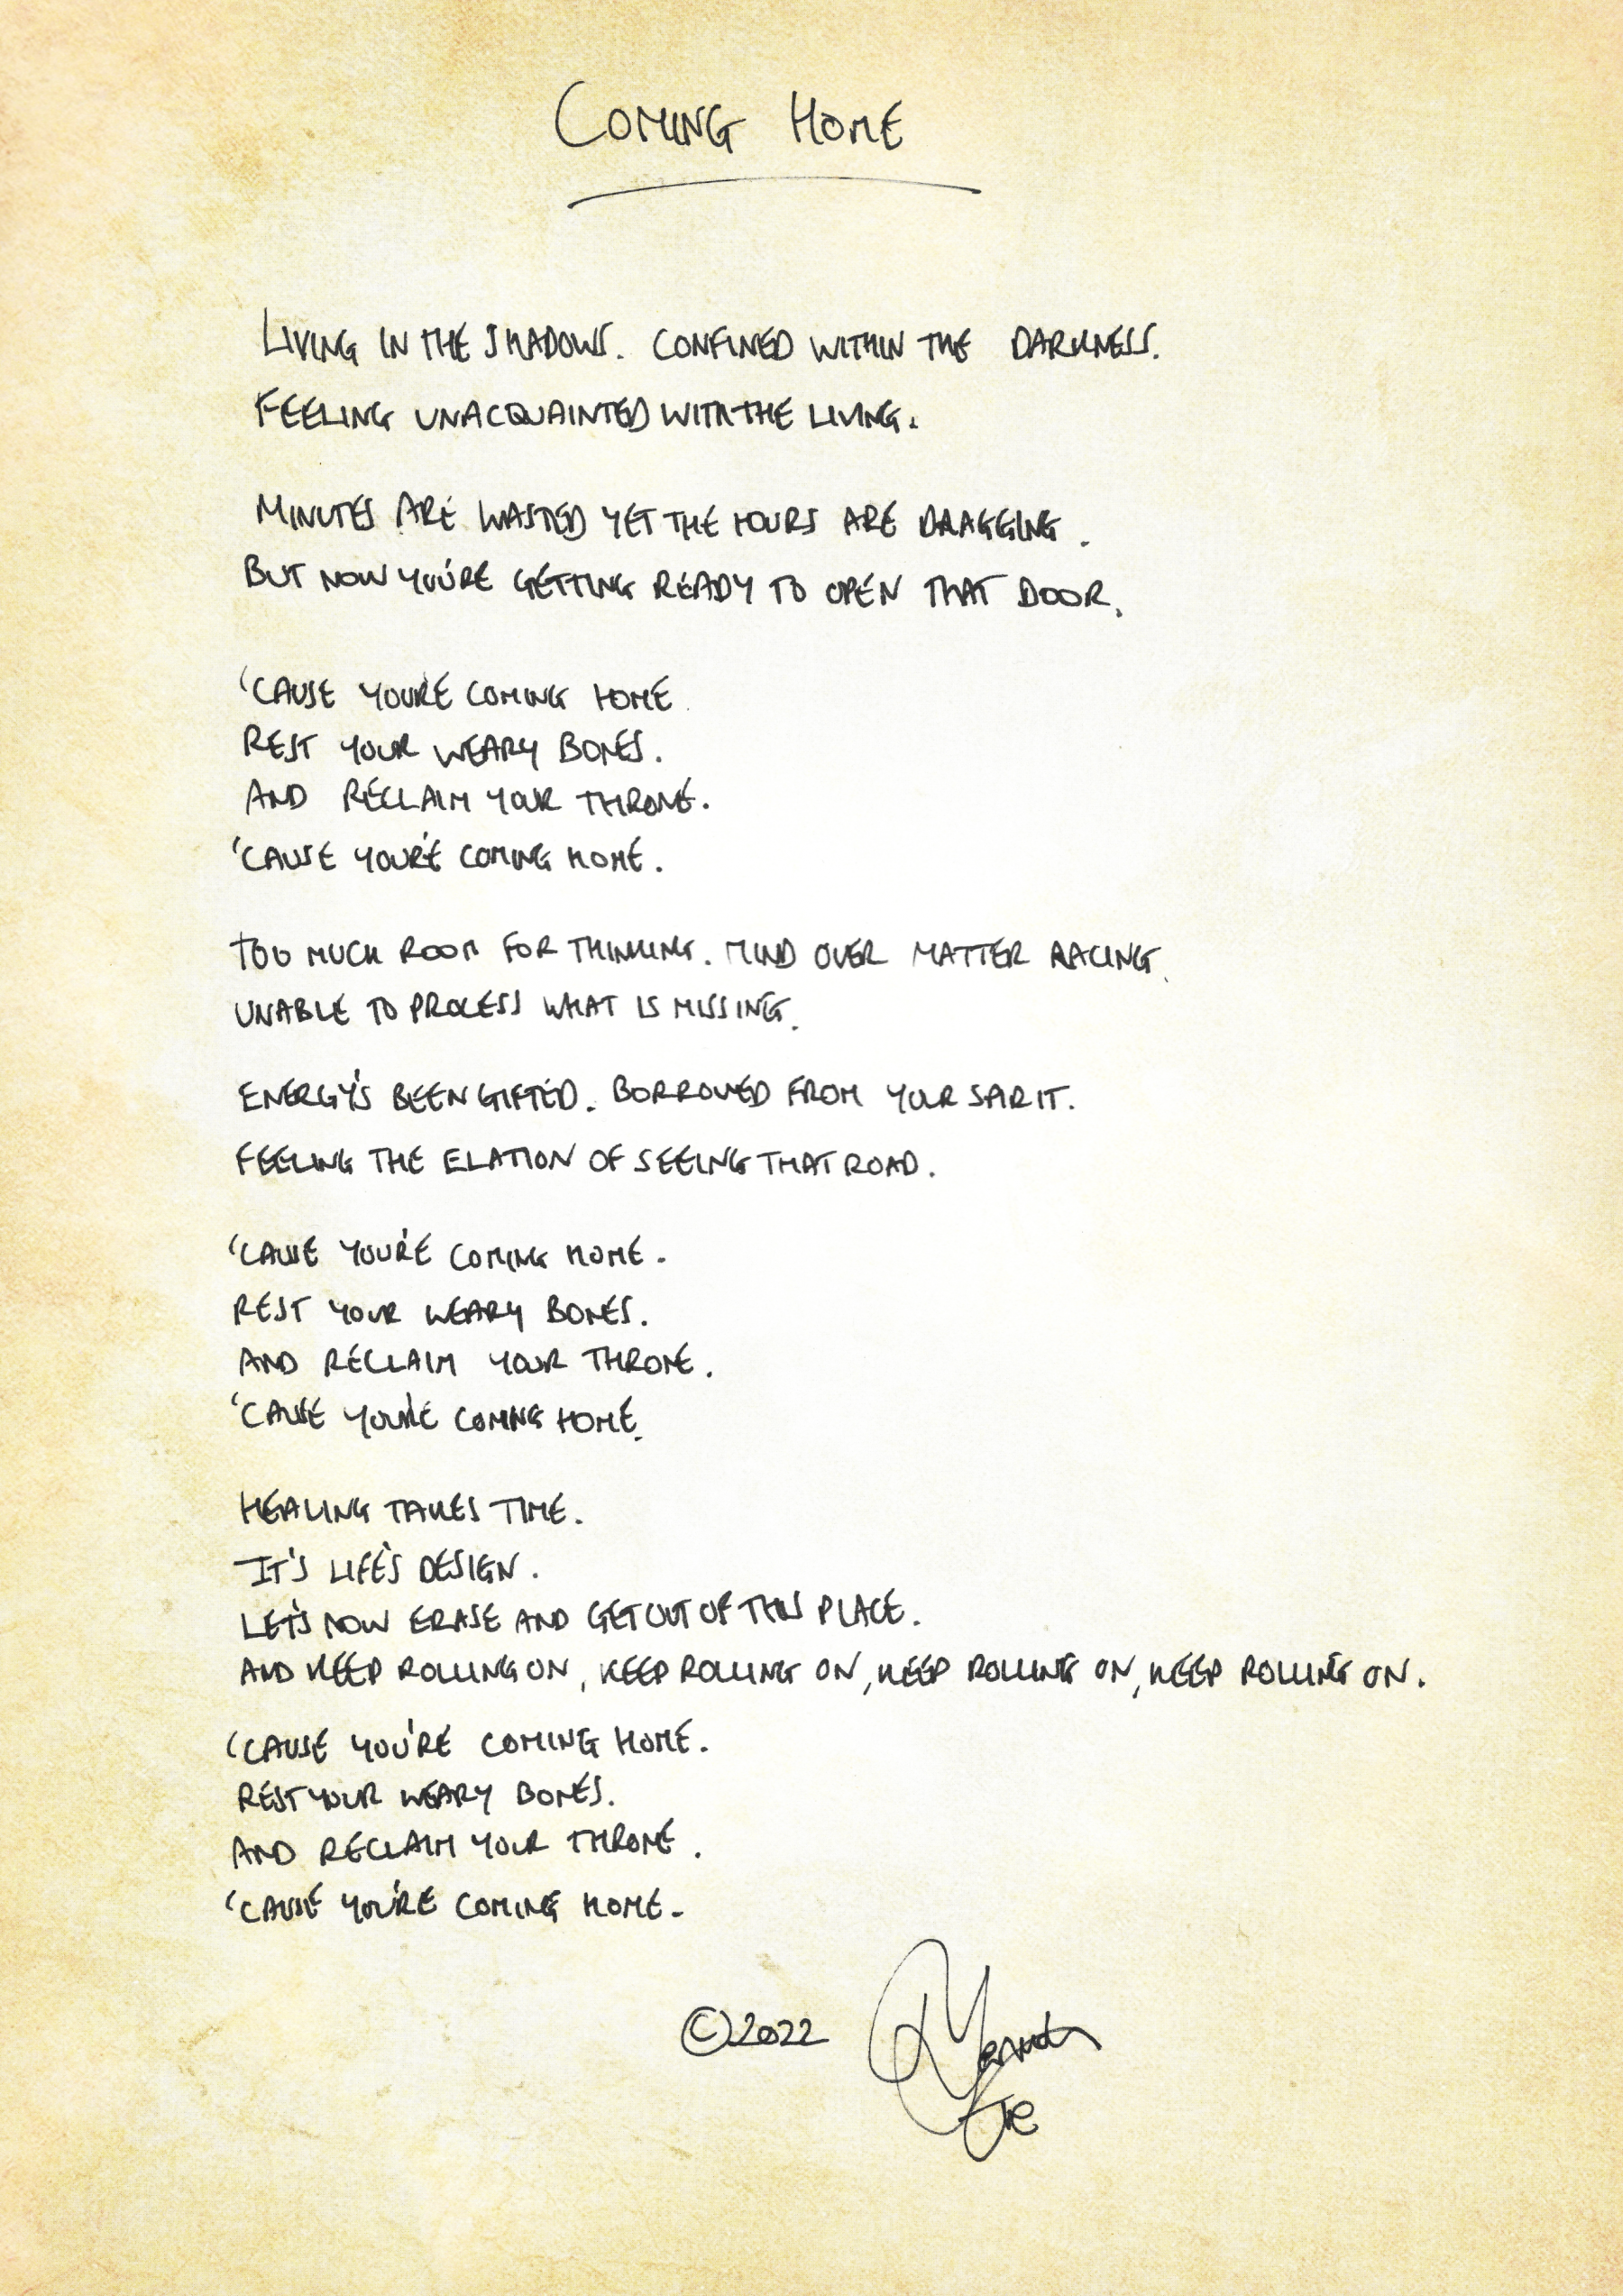 COMING HOME
LIVING IN THE SHADOWS. CONFINED WITHIN THE DARKNESS.
FEELING UNACQUAINTED WITH THE LIVING.
MINUTES ARE WASTED YET THE HOURS ARE DRAGGING.
BUT NOW YOU'RE GETTING READY TO OPEN THAT DOOR.
'CAUSE YOU'RE COMING HOME.
REST YOUR WEARY BONES.
AND RECLAIM YOUR THRONE.
'CAUSE YOU'RE COMING HOME.
TOO MUCH ROOM FOR THINKING. MIND OVER MATTER RACING.
UNABLE TO PROCESS WHAT IS MISSING.
ENERGY'S BEEN GIFTED. BORROWED FROM YOUR SPIRIT.
FEELING THE ELATION OF SEEING THAT ROAD.
'CAUSE YOU'RE COMING HOME.
REST YOUR WEARY BONES.
AND RECLAIM YOUR THRONE.
'CAUSE YOU'RE COMING HOME.
HEALING TAKES TIME.
IT'S LIFE'S DESIGN.
LET'S NOW ERASE AND GET OUT OF THIS PLACE.
AND KEEP ROLLING ON, KEEP ROLLING ON, KEEP ROLLING ON, KEEP ROLLING ON.
'CAUSE YOU'RE COMING HOME.
REST YOUR WEARY BONES.
AND RECLAIM YOUR THRONE.
'CAUSE YOU'RE COMING HOME.
©2022